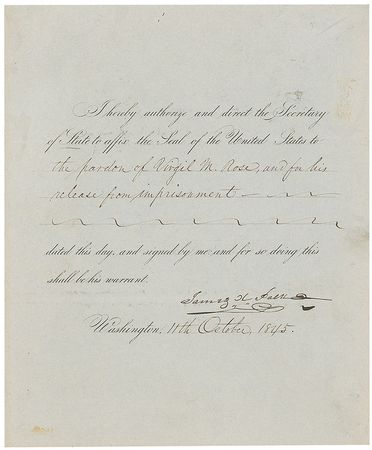 I hereby authorize and direct the Secretary
of State to affix the Seal of the United States to
the pardon of Virgil M. Rose, and for his
release from imprisonment
dated this day, and signed by me and for so doing this
shall be his warrant.
James K. Polk
Washington, 11th October, 1845.